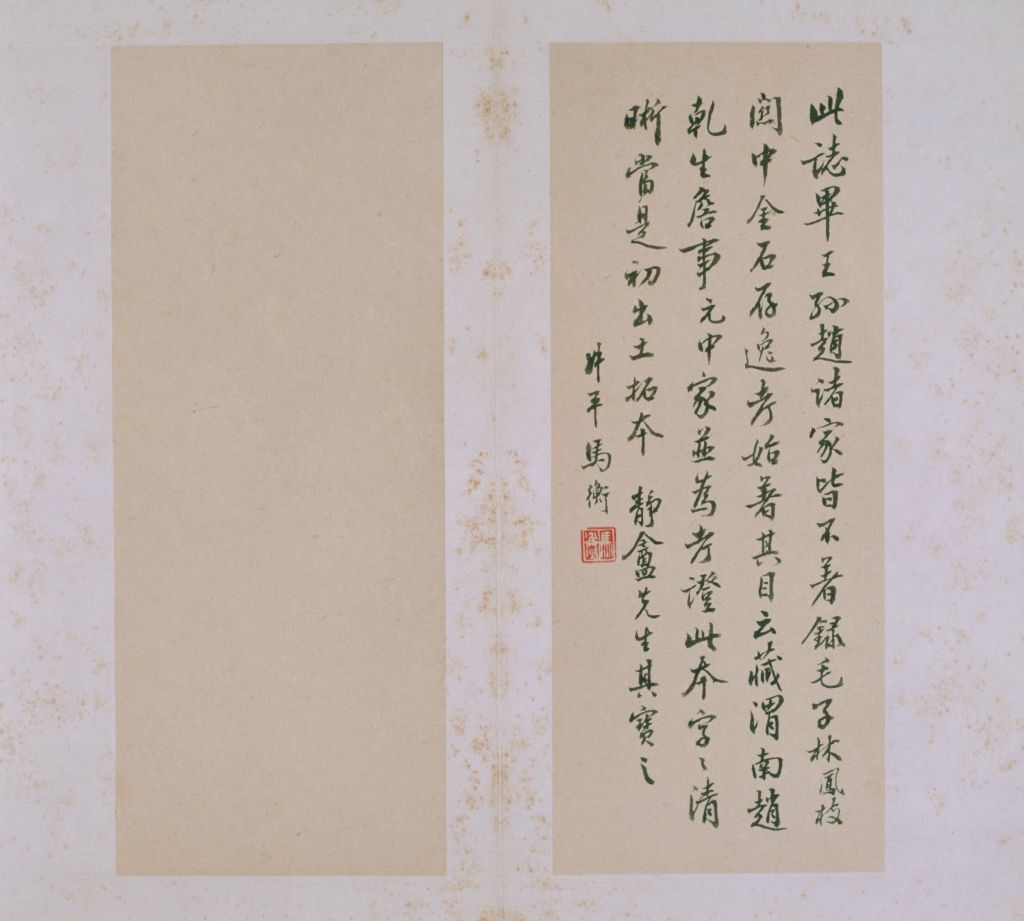 此誌畢王孫趙諸家皆不著録毛子林鳳枝
關中金石存逸考始著其目云藏渭南趙
乾生詹事元中家並為考證此本字〻清
晰當是初出土拓本 靜盦先生其寶之
馬衡